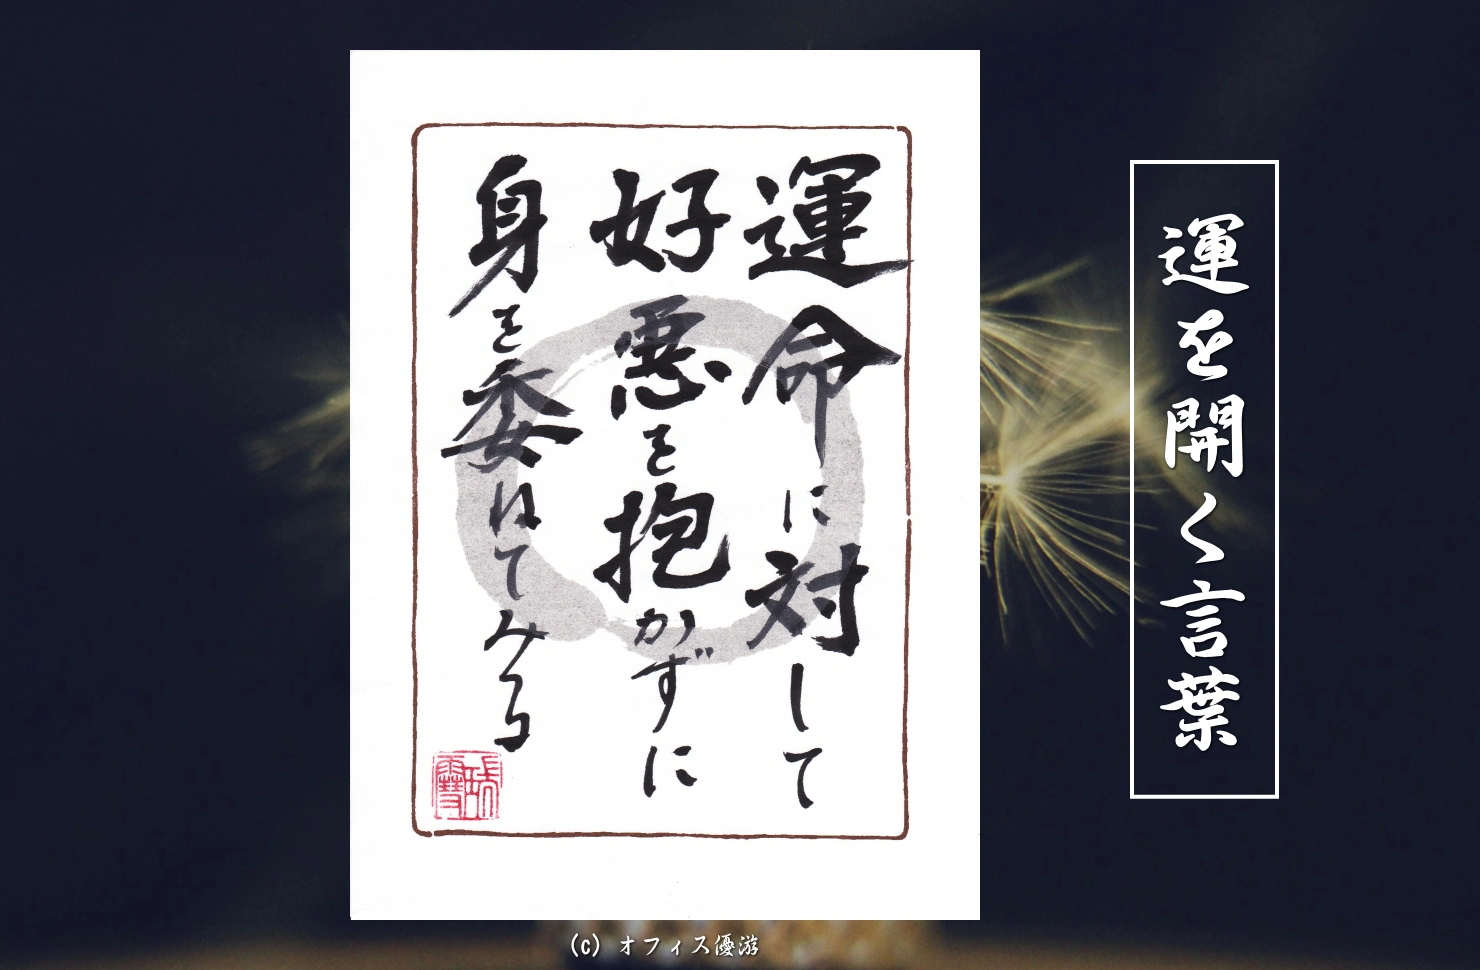 運を開く言葉
運命に対して
好悪を抱かずに
身を委ねてみる
(c) オフィス優游